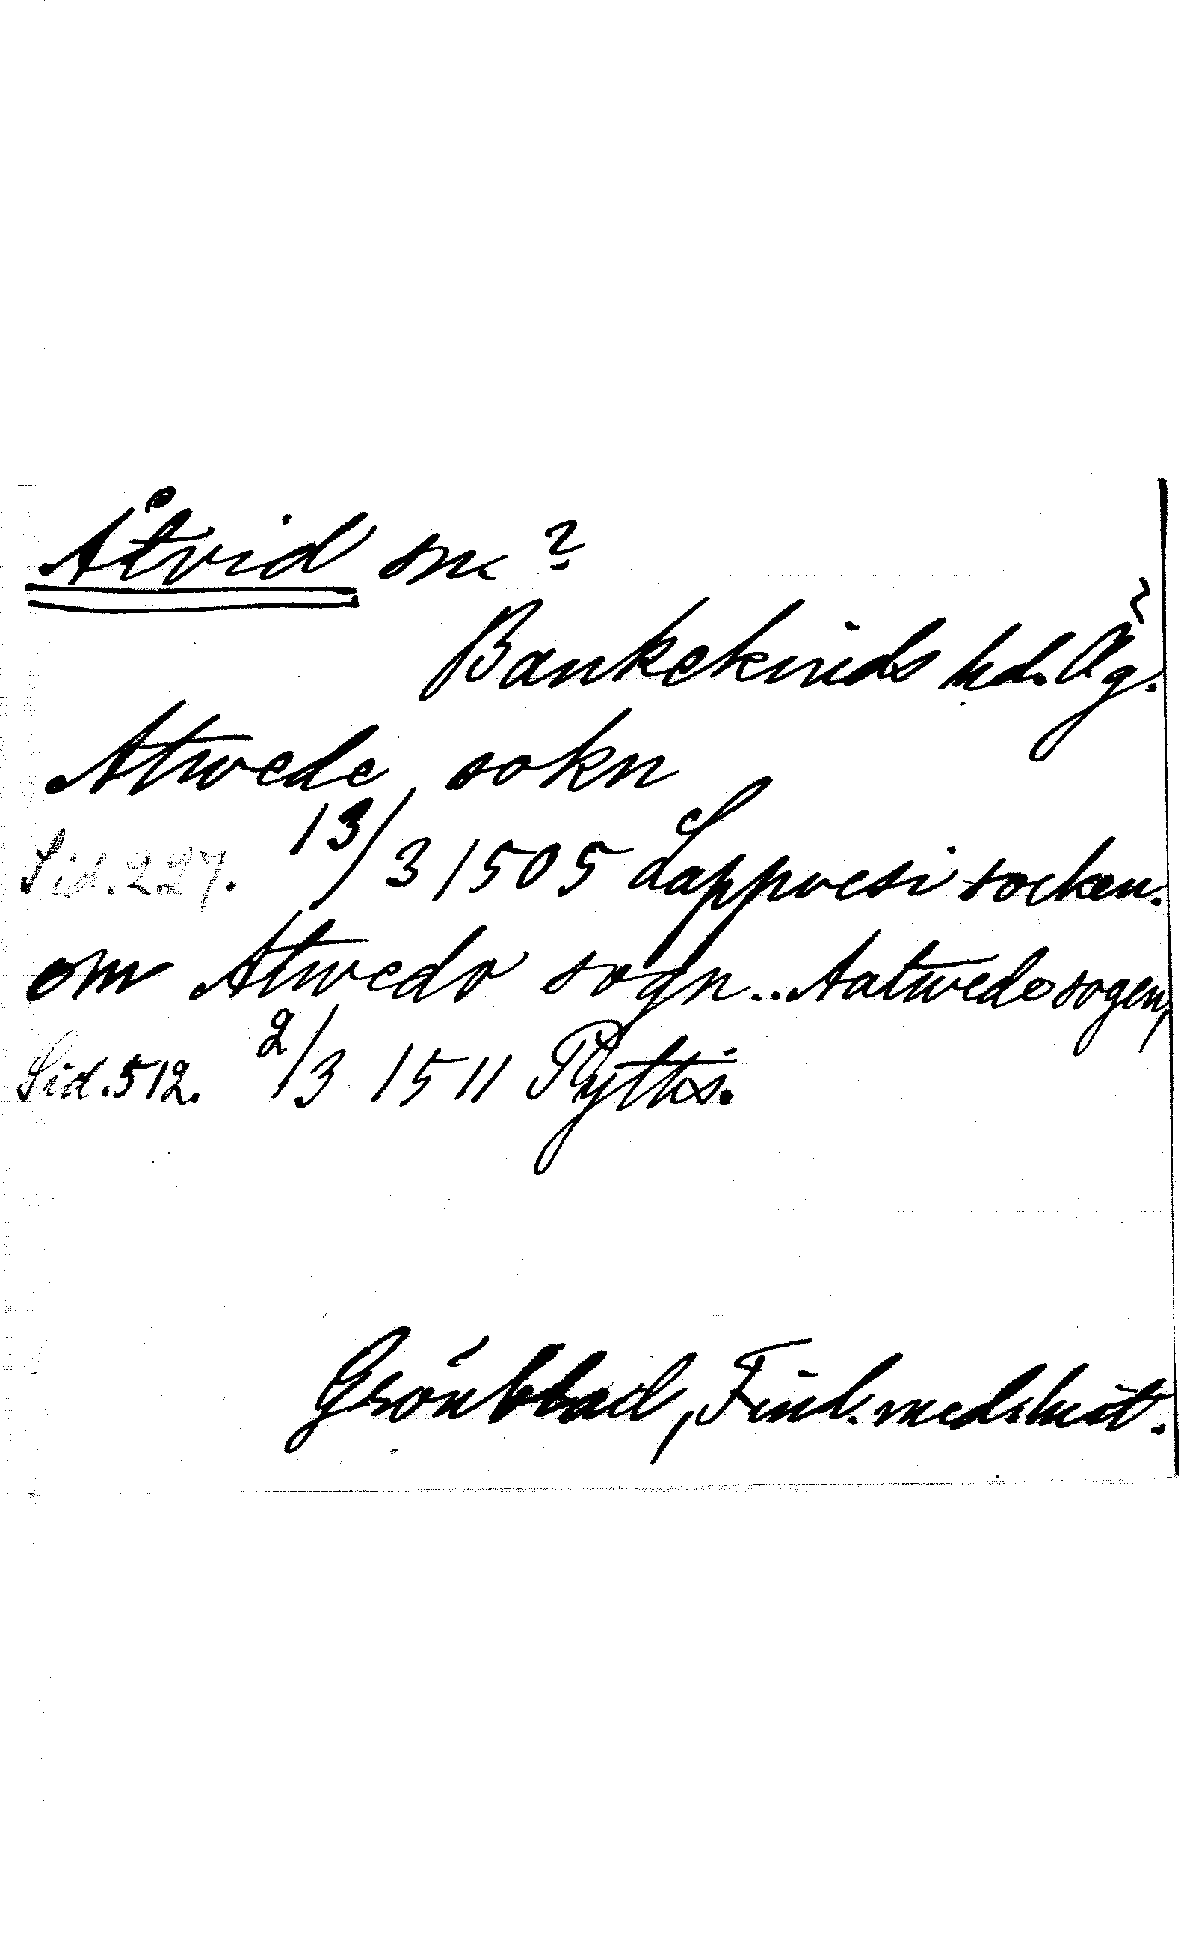 Åtvid sn ?
Bankekinds hd. Ög.
Atwede sokn
Sid. 227. 13/3 1505 Lappvesi socken.
om Atwedo sogn... Aatwedo sogen,
Sid. 512. 2/3 1511 Pyttis.
Grönblad, Finl. medeltid.